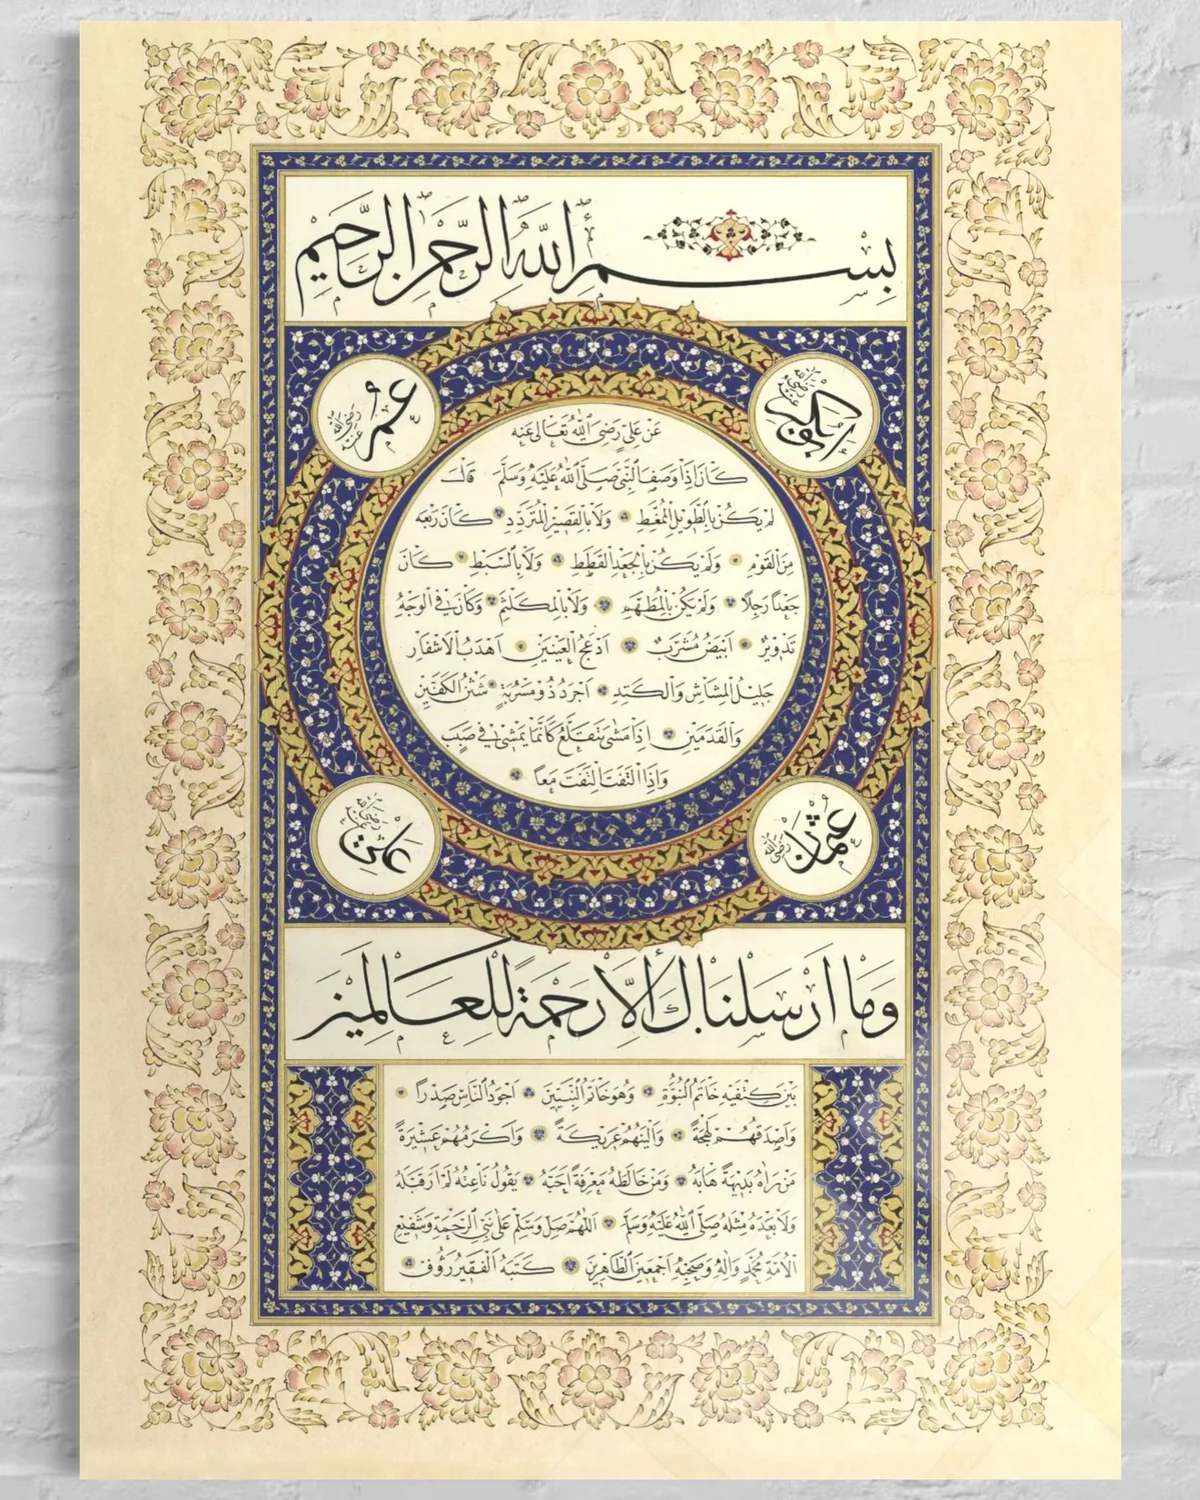 بسم الله الرحمن الرحيم
ابوبكر رضي الله عنه
عمر رضي الله عنه
عن علي رضي الله تعالى عنه
كان اذا وصف النبي صلى الله عليه وسلم قال
لم يكن بالطويل الممغط ولا بالقصير المتردد كان ربعة
من القوم ولم يكن بالجعد القطط ولا بالسبط كان
جعدا رجلا ولم يكن بالمطهم ولا بالمكلثم وكان في الوجه
تدوير ابيض مشرب ادعج العينين اهدب الاشفار
جليل المشاش والكتد اجرد ذو مسربة شثن الكفين
والقدمين اذا مشى يتقلع كانما يمشي في صبب
واذا التفت التفت معا
عثمان رضي الله عنه
علي رضي الله عنه
وما ارسلناك الا رحمة للعالمين
بين كتفيه خاتم النبوة وهو خاتم النبيين اجود الناس صدرا
واصدقهم لهجة والينهم عريكة واكرمهم عشيرة
من رآه بديهة هابه ومن خالطه معرفة احبه يقول ناعته لم ار قبله
ولا بعده مثله صلى الله عليه وسلم اللهم صل وسلم على نبي الرحمة وشفيع
الامة محمد وآله وصحبه اجمعين الطاهرين كتبه الفقير رؤف